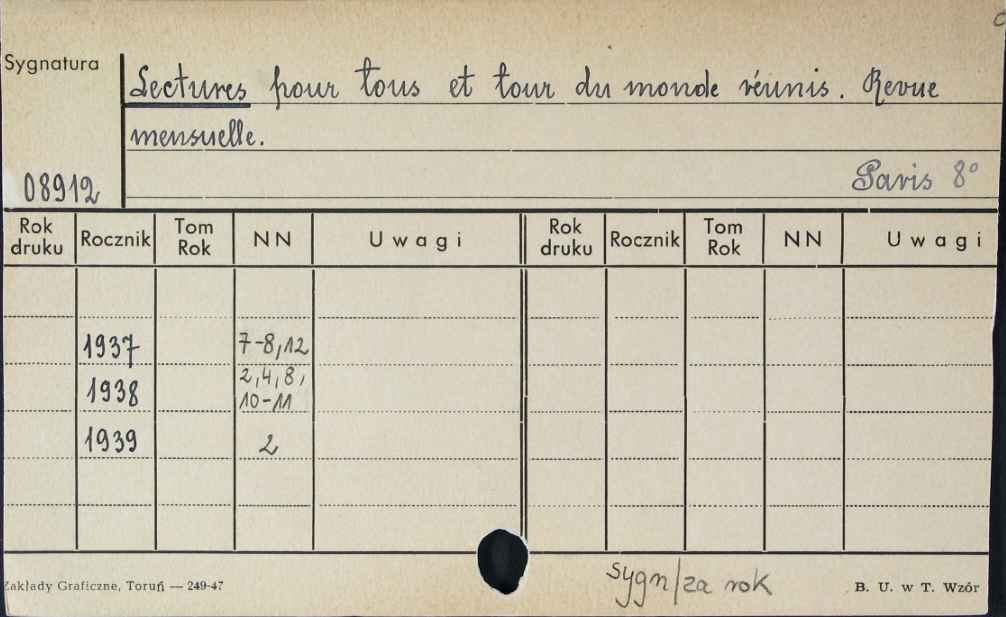 Sygnatura
Lectures pour tous et tour du monde réunis. Revue
mensuelle.
08912
Paris 8°
Rok druku Rocznik Tom Rok NN Uwagi Rok druku Rocznik Tom Rok NN Uwagi
1937 7-8,12
1938 2,4,8,
10-11
1939 2
sygn/za rok
Zakłady Graficzne, Toruń — 249-47 B. U. w T. Wzór